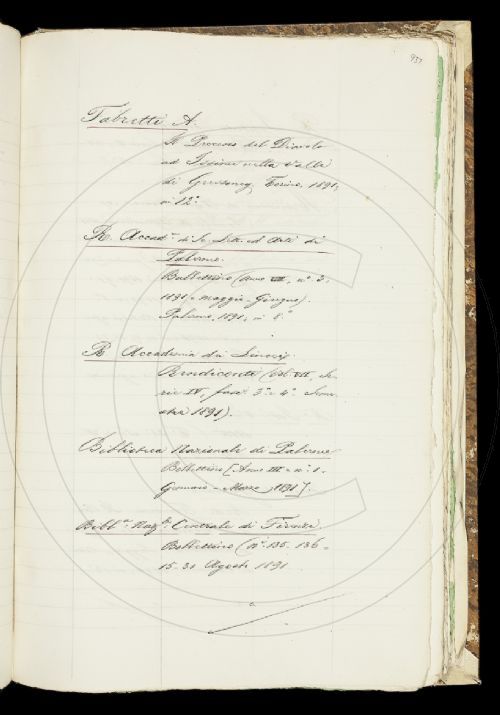 937
Fabretti A.
Il Processo del Diavolo
ad Issime nella Valle
di Gressoney, Torino, 1891,
in 12.°
R. Accad.ª di Sc. Lett. ed Arti di
Palermo.
Bullettino (Anno VIII, n.° 3,
1891 = Maggio-Giugno).
Palermo, 1891, in 8.°
R. Accademia dei Lincei.
Rendiconti (Vol. VII, Se-
rie IV, fasc. 3.° e 4.° Seme-
stre 1891).
Biblioteca Nazionale di Palermo
Bollettino [Anno III = n.° 1.
Gennaio - Marzo 1891].
Bibl.ª Naz.le Centrale di Firenze.
Bollettino (N.° 135. 136 =
15. 31 Agosto 1891